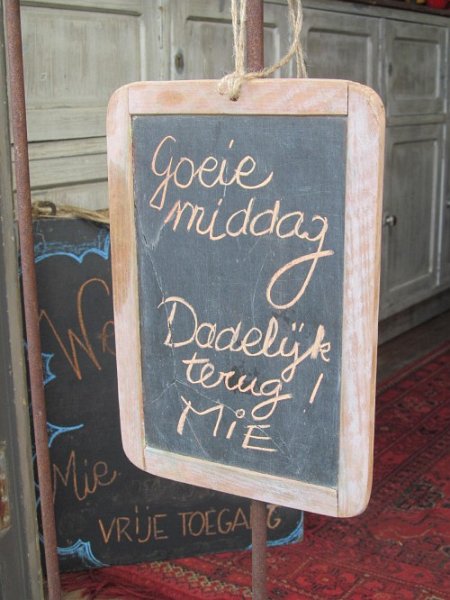 Goeie
middag
Dadelijk
terug!
MiE
Mie
VRIJE TOEGANG